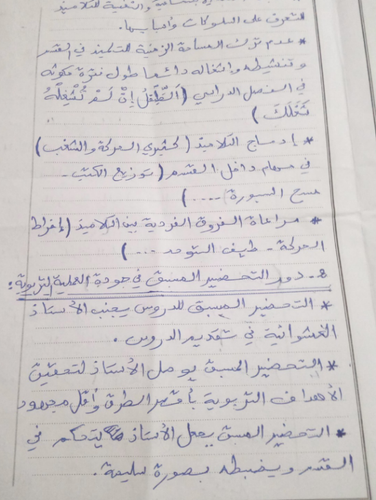 للتعرف على السلوكات وأسبابها.
* عدم ترك المساحة الزمنية للتلميذ في القسم
وتنشيطه وإشغاله دائما طول فترة مكوثه
في الفصل الدراسي (الطِّفْلُ إِنْ لَمْ تُشْغِلْهُ
شَغَلَكَ)
* إدماج التلاميذ (كثيري الحركة والشغب)
في مهام داخل القسم (توزيع الكتب -
مسح السبورة ....)
* مراعاة الفروق الفردية بين التلاميذ (إفراط
الحركة - طيف التوحد ...)
8- دور التحضير المسبق في جودة العملية التربوية:
* التحضير المسبق للدروس يجنب الأستاذ
العشوائية في تقديم الدروس.
* التحضير المسبق يوصل الأستاذ لتحقيق
الأهداف التربوية بأقصر الطرق وأقل مجهود
* التحضير المسبق يجعل الأستاذ يتحكم في
القسم ويضبطه بصورة سليمة.